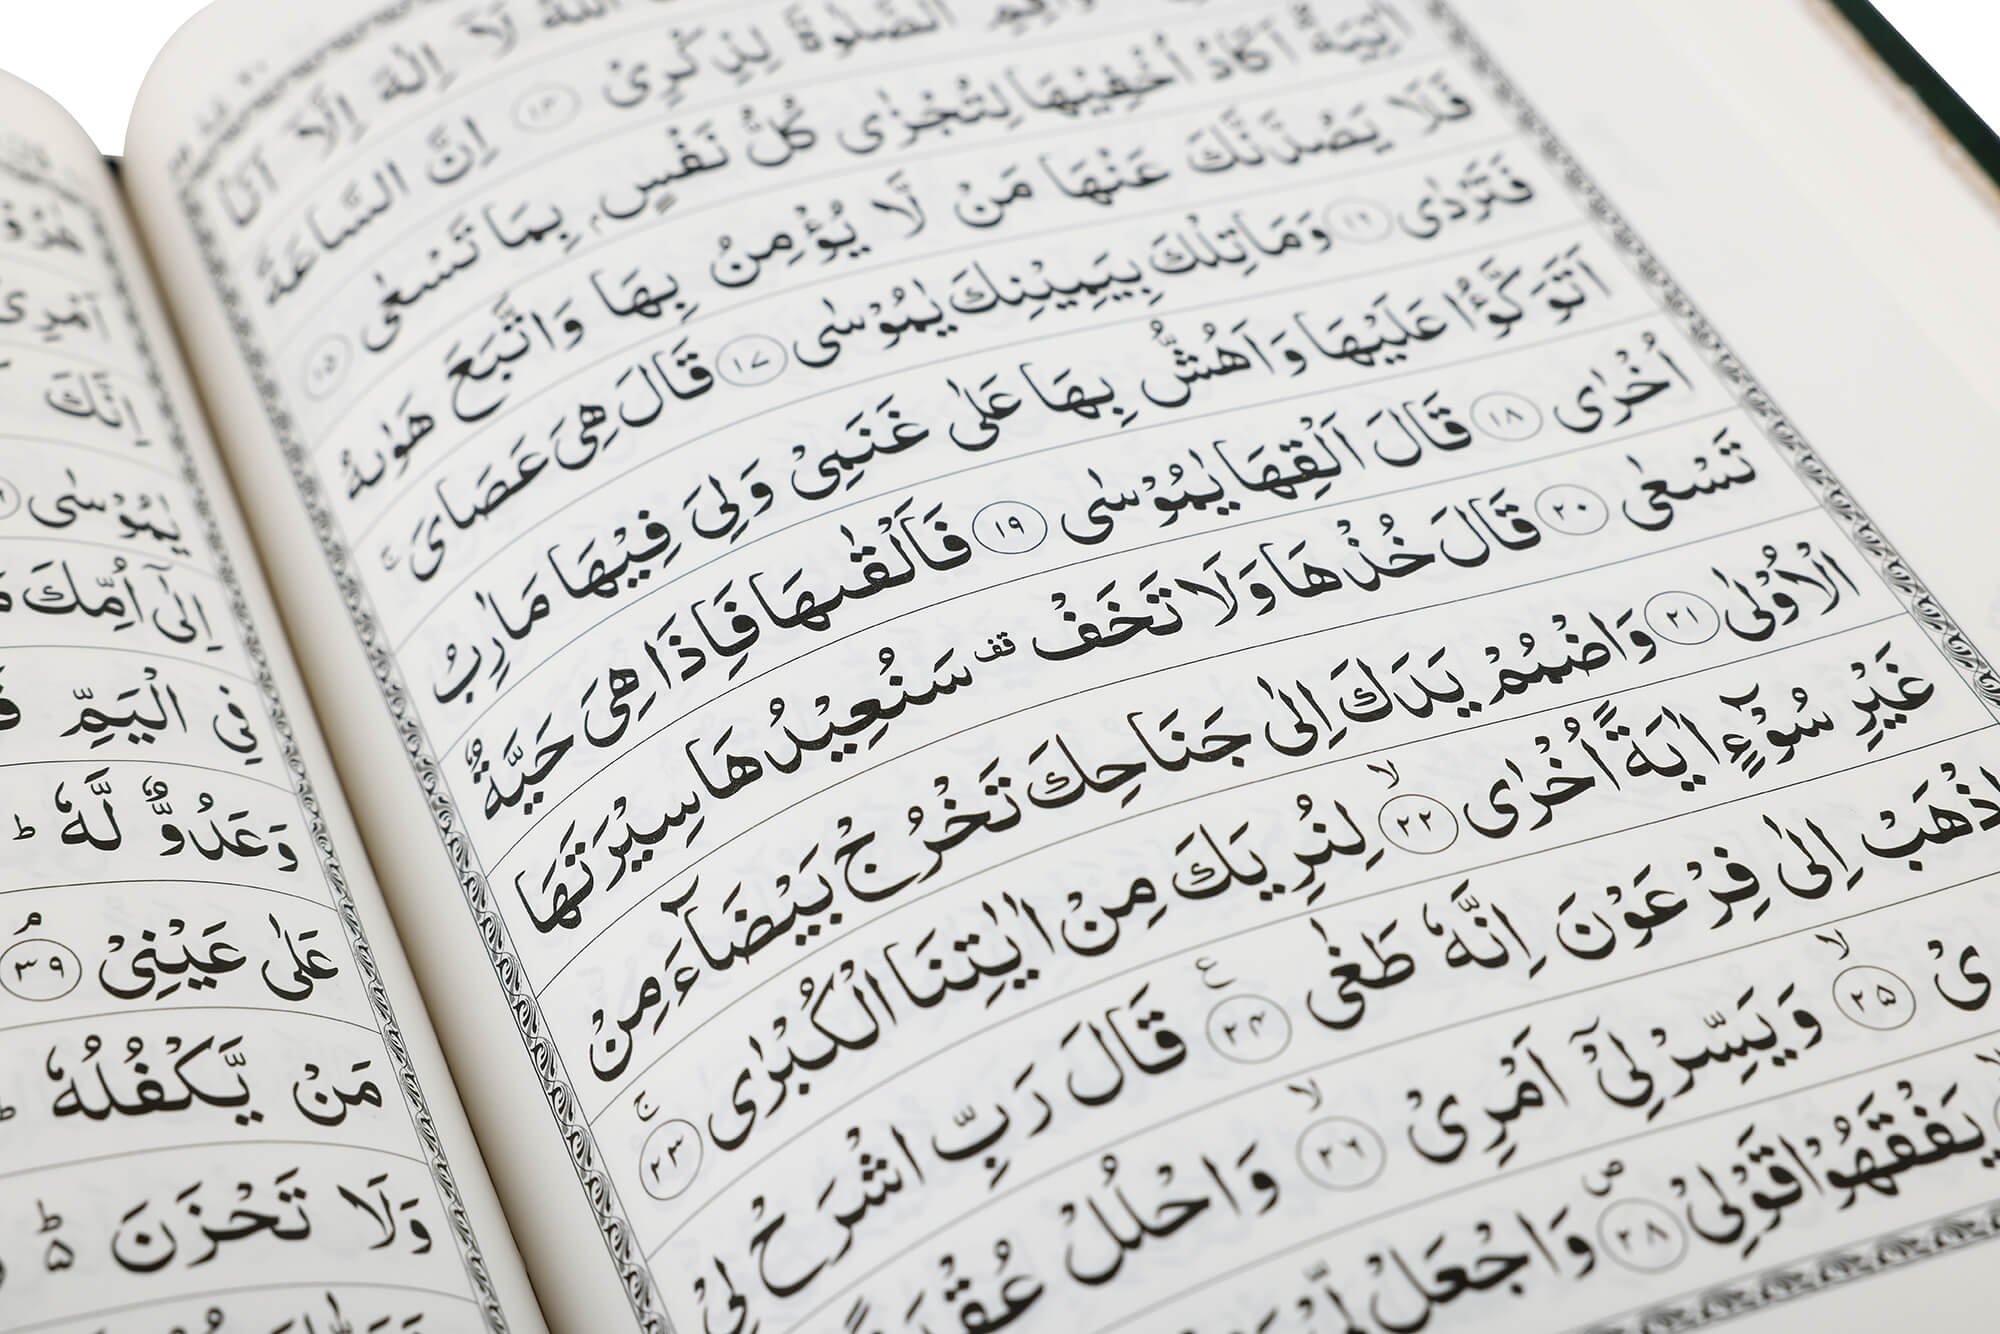 اللّٰهُ لَاۤ اِلٰهَ اِلَّاۤ اَنَا
الصَّلٰوةَ لِذِكْرِىْ ١٤ اِنَّ السَّاعَةَ
اٰتِيَةٌ اَكَادُ اُخْفِيْهَا لِتُجْزٰى كُلُّ نَفْسٍۭ بِمَا تَسْعٰى ١٥
فَلَا يَصُدَّنَّكَ عَنْهَا مَنْ لَّا يُؤْمِنُ بِهَا وَاتَّبَعَ هَوٰٮهُ
فَتَرْدٰى ١٦ وَمَا تِلْكَ بِيَمِيْنِكَ يٰمُوْسٰى ١٧ قَالَ هِىَ عَصَاىَ ۚ
اَتَوَكَّؤُا عَلَيْهَا وَاَهُشُّ بِهَا عَلٰى غَنَمِىْ وَلِىَ فِيْهَا مَاٰرِبُ
اُخْرٰى ١٨ قَالَ اَلْقِهَا يٰمُوْسٰى ١٩ فَاَلْقٰٮهَا فَاِذَا هِىَ حَيَّةٌ
تَسْعٰى ٢٠ قَالَ خُذْهَا وَلَا تَخَفْ قف سَنُعِيْدُهَا سِيْرَتَهَا
الْاُوْلٰى ٢١ وَاضْمُمْ يَدَكَ اِلٰى جَنَاحِكَ تَخْرُجْ بَيْضَآءَ مِنْ
غَيْرِ سُوْٓءٍ اٰيَةً اُخْرٰى ۙ ٢٢ لِنُرِيَكَ مِنْ اٰيٰتِنَا الْكُبْرٰى ۚ ٢٣
اِذْهَبْ اِلٰى فِرْعَوْنَ اِنَّهٗ طَغٰى ٢٤ ع قَالَ رَبِّ اشْرَحْ لِىْ
ىْ ۙ ٢٥ وَيَسِّرْ لِىْۤ اَمْرِىْ ۙ ٢٦ وَاحْلُلْ عُقْدَةً
يَفْقَهُوْا قَوْلِىْ ص ٢٨ وَاجْعَلْ لِّىْ
اَمْرِىْ
اِنَّكَ
يٰمُوْسٰى
اِلٰٓى اُمِّكَ
فِى الْيَمِّ
وَعَدُوٌّ لَّهٗ ؕ
عَلٰى عَيْنِىْ ۘ ٣٩
مَنْ يَّكْفُلُهٗ ؕ
وَلَا تَحْزَنَ ؕ